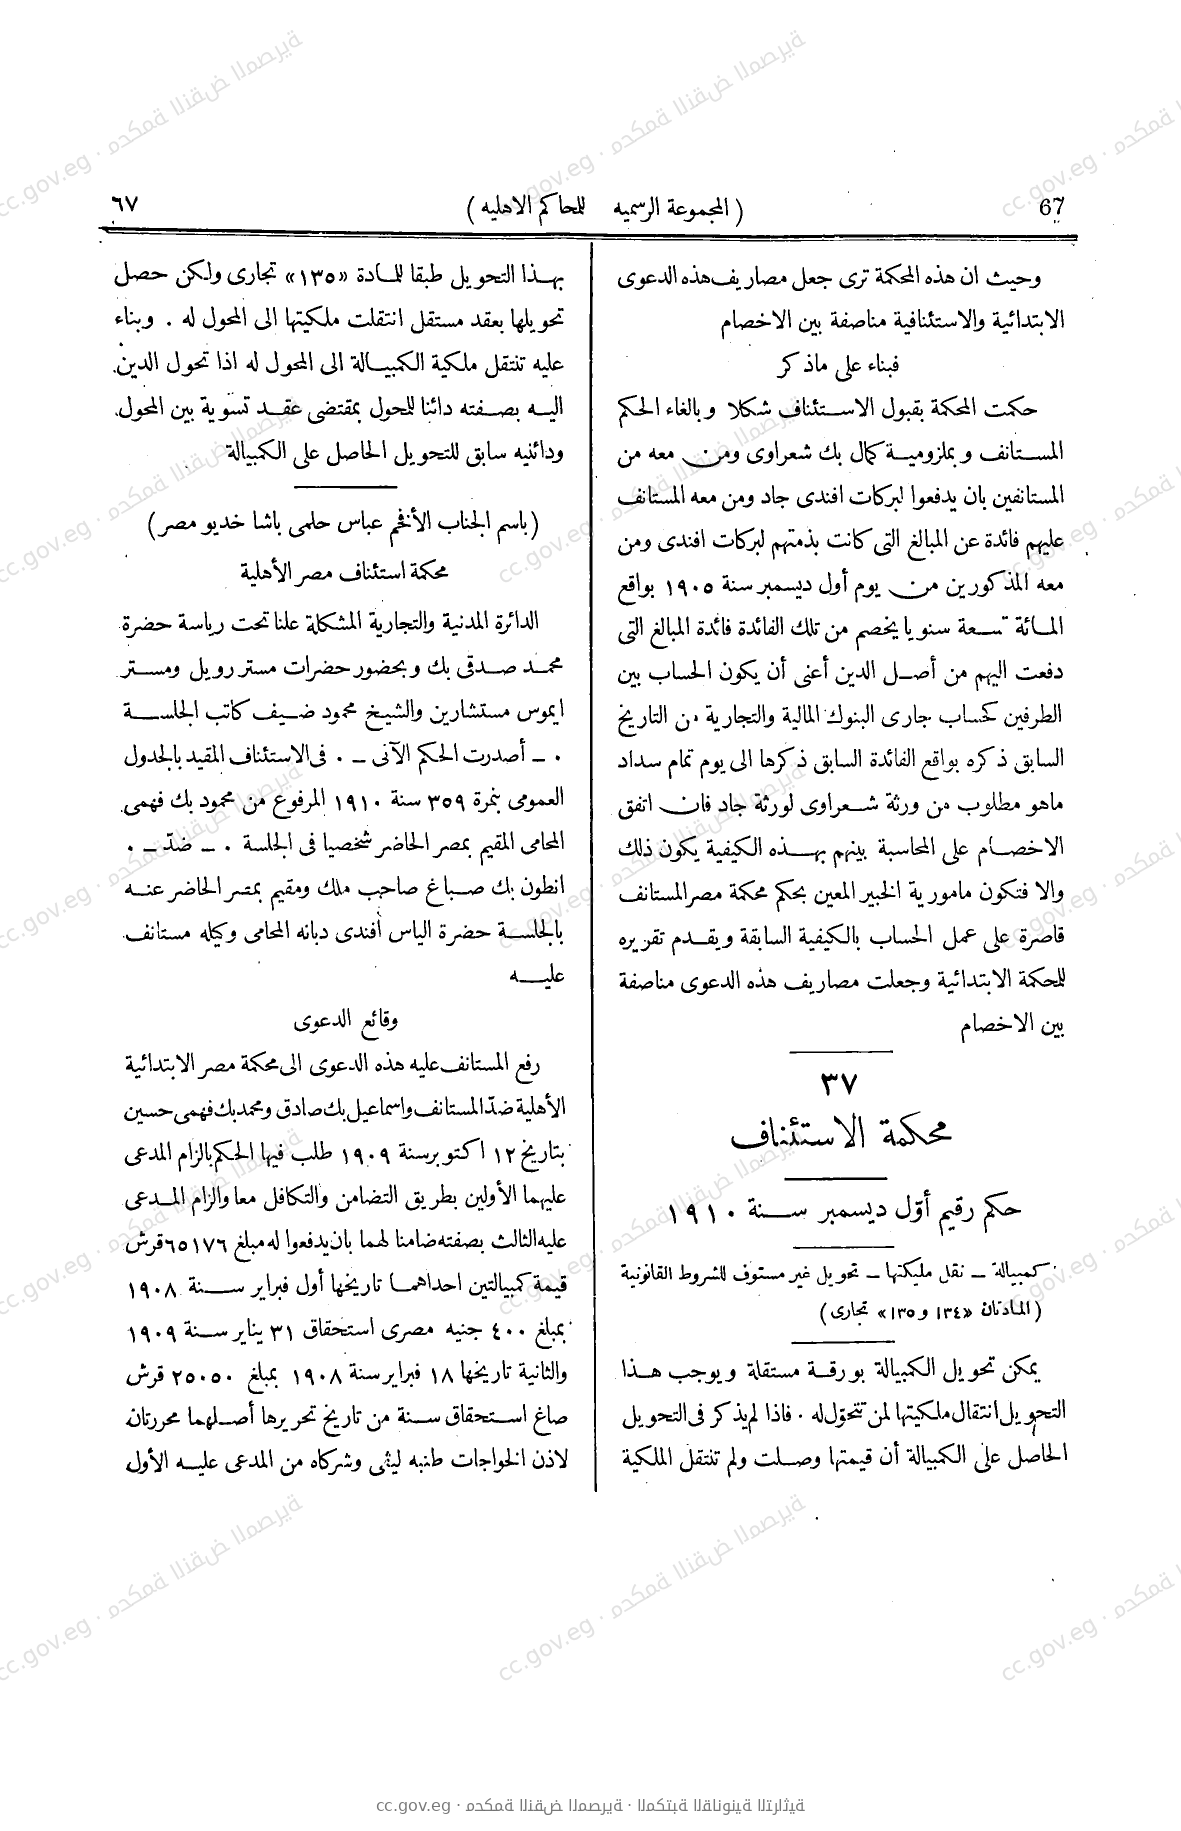 67 (المجموعة الرسميه للمحاكم الاهليه) ٦٧
وحيث ان هذه المحكمة ترى جعل مصاريف هذه الدعوى
الابتدائية والاستئنافية مناصفة بين الاخصام
فبناء على ماذكر
حكمت المحكمة بقبول الاستئناف شكلا وبالغاء الحكم
المستانف وبملزومية كمال بك شعراوى ومن معه من
المستانفين بان يدفعوا لبركات افندى جاد ومن معه المستانف
عليهم فائدة عن المبالغ التى كانت بذمتهم لبركات افندى ومن
معه المذكورين من يوم أول ديسمبر سنة ١٩٠٥ بواقع
المائة تسعة سنويا يخصم من تلك الفائدة فائدة المبالغ التى
دفعت اليهم من أصل الدين أعنى أن يكون الحساب بين
الطرفين كحساب جارى البنوك المالية والتجارية من التاريخ
السابق ذكره بواقع الفائدة السابق ذكرها الى يوم تمام سداد
ماهو مطلوب من ورثة شعراوى لورثة جاد فان اتفق
الاخصام على المحاسبة بينهم بهذه الكيفية يكون ذلك
والا فتكون مامورية الخبير المعين بحكم محكمة مصر المستانف
قاصرة على عمل الحساب بالكيفية السابقة ويقدم تقريره
للمحكمة الابتدائية وجعلت مصاريف هذه الدعوى مناصفة
بين الاخصام
٣٧
محكمة الاستئناف
حكم رقيم أوّل ديسمبر سنة ١٩١٠
كمبيالة – نقل مليكتها – تحويل غير مستوف للشروط القانونية
(المادتان «١٣٤ و١٣٥» تجارى)
يمكن تحويل الكمبيالة بورقة مستقلة ويوجب هذا
التحويل انتقال ملكيتها لمن تتحوّل له . فاذا لم يذكر فى التحويل
الحاصل على الكمبيالة أن قيمتها وصلت ولم تنتقل الملكية
بهذا التحويل طبقا للمادة «١٣٥» تجارى ولكن حصل
تحويلها بعقد مستقل انتقلت ملكيتها الى المحول له . وبناء
عليه تنتقل ملكية الكمبيالة الى المحول له اذا تحول الدين
اليه بصفته دائنا للمحول بمقتضى عقد تسوية بين المحول
ودائنيه سابق للتحويل الحاصل على الكمبيالة
(باسم الجناب الأفخم عباس حلمى باشا خديو مصر)
محكمة استئناف مصر الأهلية
الدائرة المدنية والتجارية المشكلة علنا تحت رياسة حضرة
محمد صدقى بك وبحضور حضرات مستر رويل ومستر
ايموس مستشارين والشيخ محمود ضيف كاتب الجلسة
٠ – أصدرت الحكم الآتى – ٠ فى الاستئناف المقيد بالجدول
العمومى بنمرة ٣٥٩ سنة ١٩١٠ المرفوع من محمود بك فهمى
المحامى المقيم بمصر الحاضر شخصيا فى الجلسة ٠ – ضدّ – ٠
انطون بك صباغ صاحب ملك ومقيم بمصر الحاضر عنه
بالجلسة حضرة الياس أفندى دبانه المحامى وكيله مستانف
عليه
وقائع الدعوى
رفع المستانف عليه هذه الدعوى الى محكمة مصر الابتدائية
الأهلية ضدّ المستانف واسماعيل بك صادق ومحمد بك فهمى حسين
بتاريخ ١٢ اكتوبر سنة ١٩٠٩ طلب فيها الحكم بالزام المدعى
عليهما الأولين بطريق التضامن والتكافل معا والزام المدعى
عليه الثالث بصفته ضامنا لهما بان يدفعوا له مبلغ ٦٥١٧٦ قرش
قيمة كمبيالتين احداهما تاريخها أول فبراير سنة ١٩٠٨
بمبلغ ٤٠٠ جنيه مصرى استحقاق ٣١ يناير سنة ١٩٠٩
والثانية تاريخها ١٨ فبراير سنة ١٩٠٨ بمبلغ ٢٥٠٥٠ قرش
صاغ استحقاق سنة من تاريخ تحريرها أصلهما محررتان
لاذن الخواجات طنبه ليثى وشركاه من المدعى عليه الأول
cc.gov.eg · محكمة النقض المصرية · المكتبة القانونية التراثية